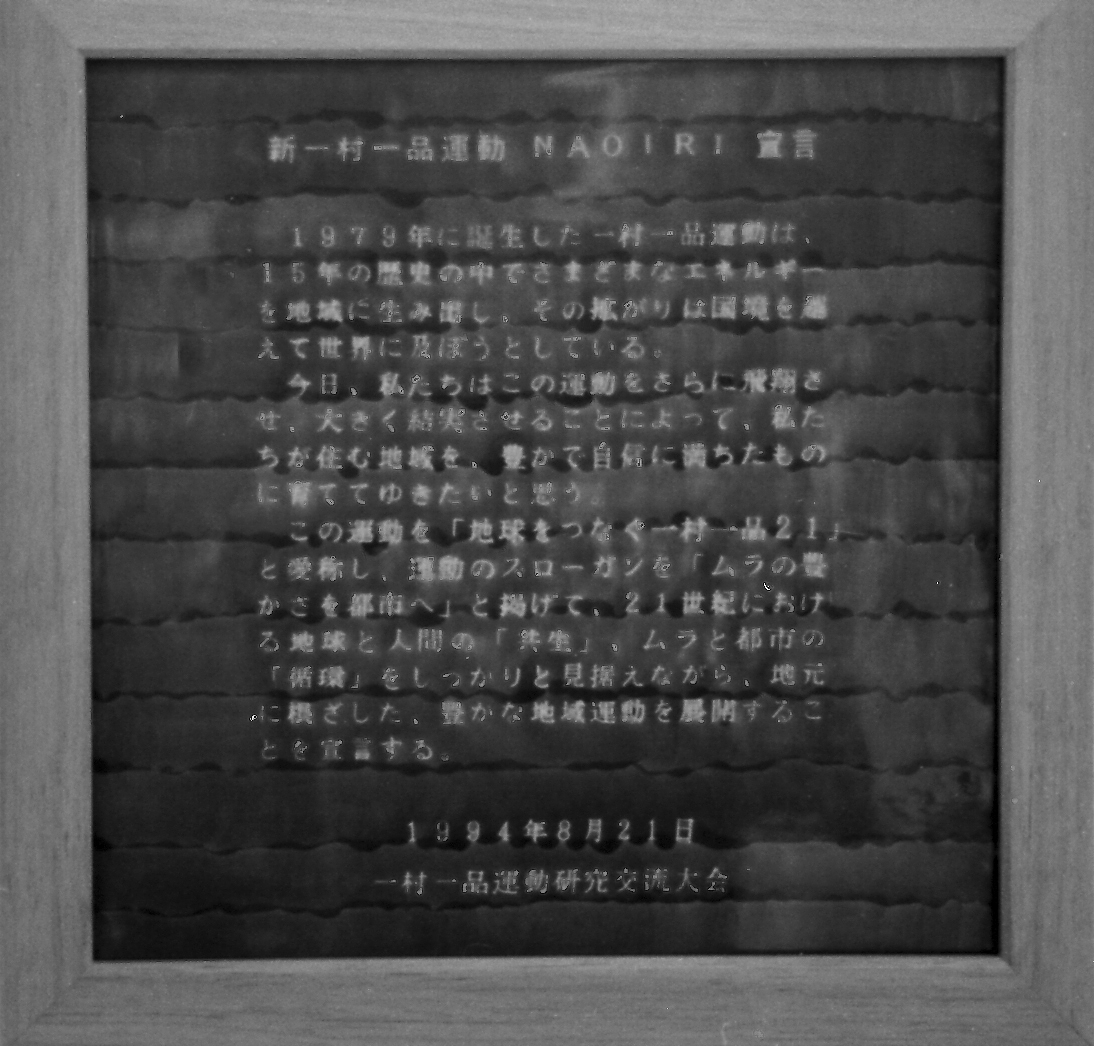 新一村一品運動 NAOIRI 宣言
1979年に誕生した一村一品運動は、
15年の歴史の中でさまざまなエネルギー
を地域に生み出し、その拡がりは国境を越
えて世界に及ぼうとしている。
今日、私たちはこの運動をさらに飛翔さ
せ、大きく結実させることによって、私た
ちが住む地域を、豊かで自信に満ちたもの
に育ててゆきたいと思う。
この運動を「地球をつなぐ一村一品21」
と愛称し、運動のスローガンを「ムラの豊
かさを都市へ」と掲げて、21世紀におけ
る地球と人間の「共生」、ムラと都市の
「循環」をしっかりと見据えながら、地元
に根ざした、豊かな地域運動を展開するこ
とを宣言する。
1994年8月21日
一村一品運動研究交流大会